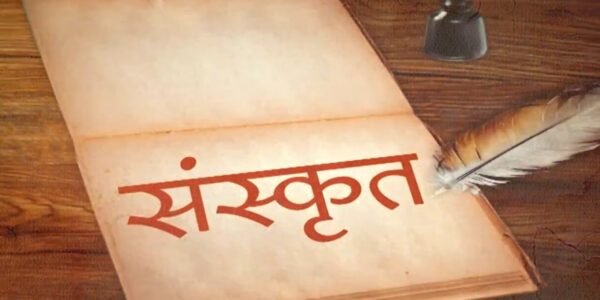 संस्कृत